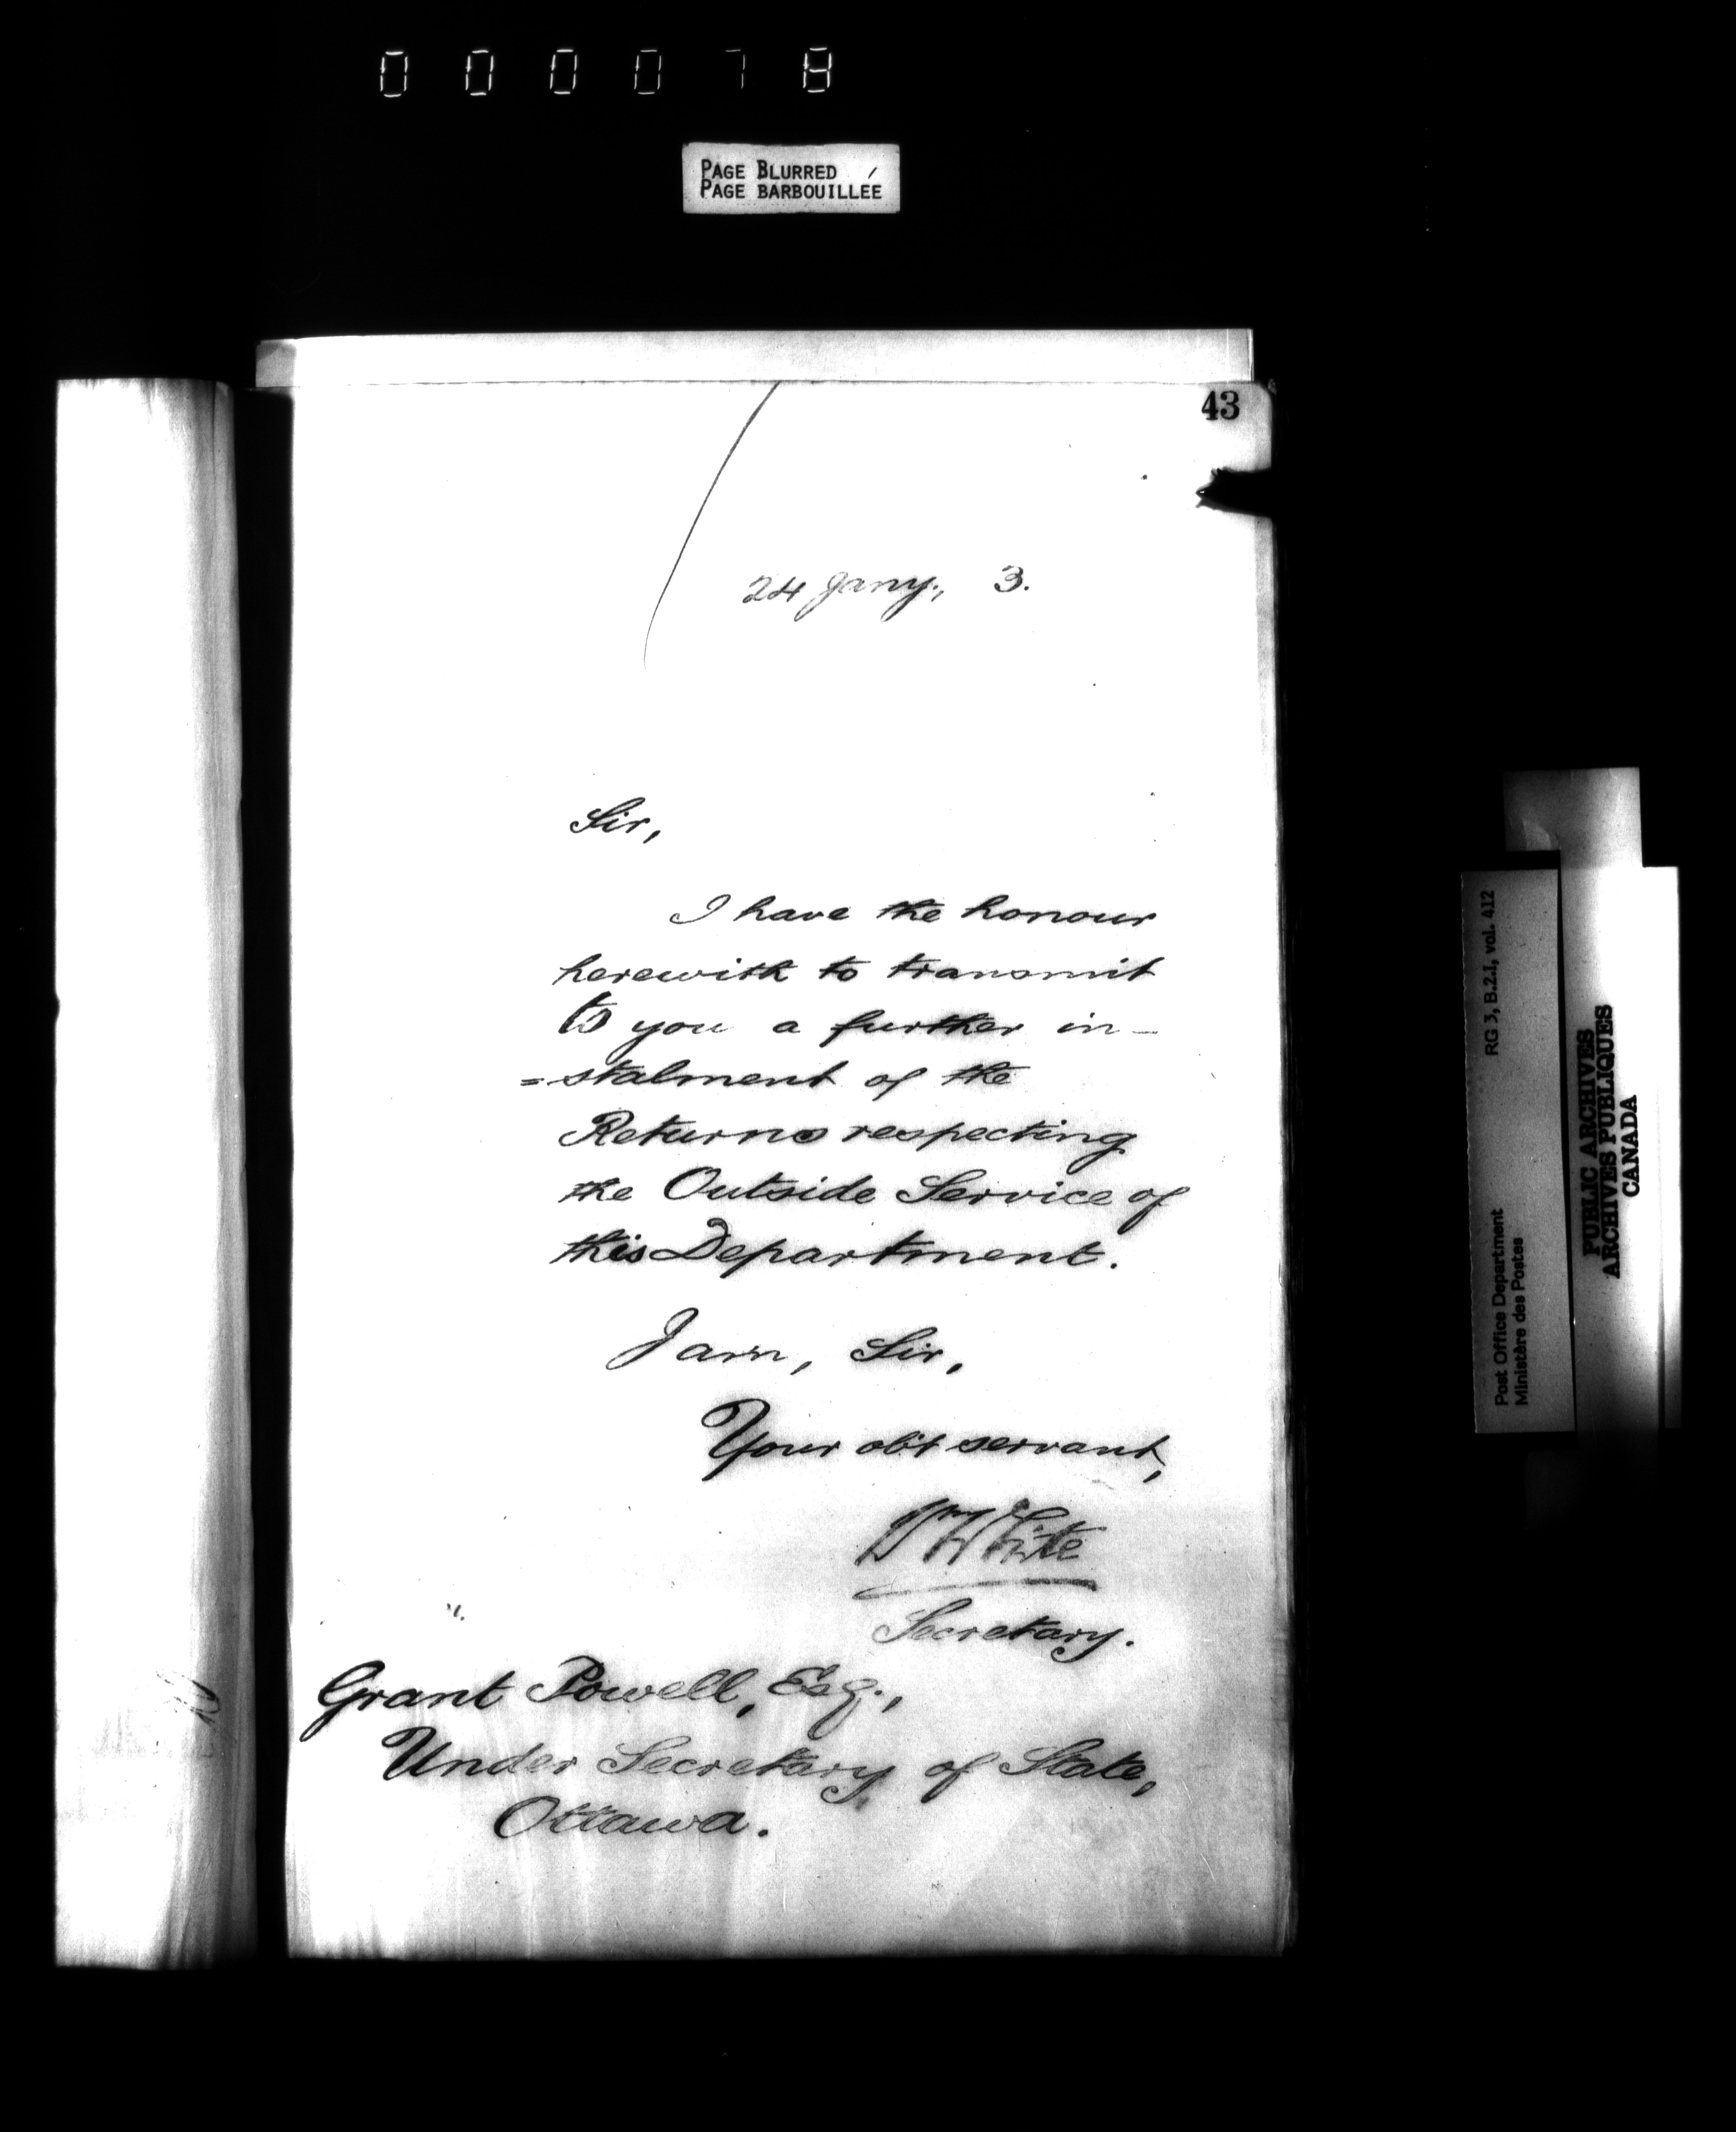 000078
PAGE BLURRED
PAGE BARBOUILLÉE
43
24 Jany., 3.
Sir,
I have the honour
herewith to transmit
to you a further in-
=stalment of the
Returns respecting
the Outside Service of
this Department.
I am, Sir,
Your obt servant,
Wm White
Secretary.
Grant Powell, Esq.,
Under Secretary of State,
Ottawa.
RG 3, B.2.1, vol. 412
Post Office Department
Ministère des Postes
PUBLIC ARCHIVES
ARCHIVES PUBLIQUES
CANADA